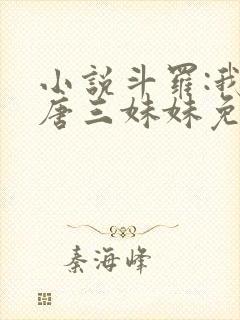 小説斗羅:我
唐三妹妹免
秦海峰